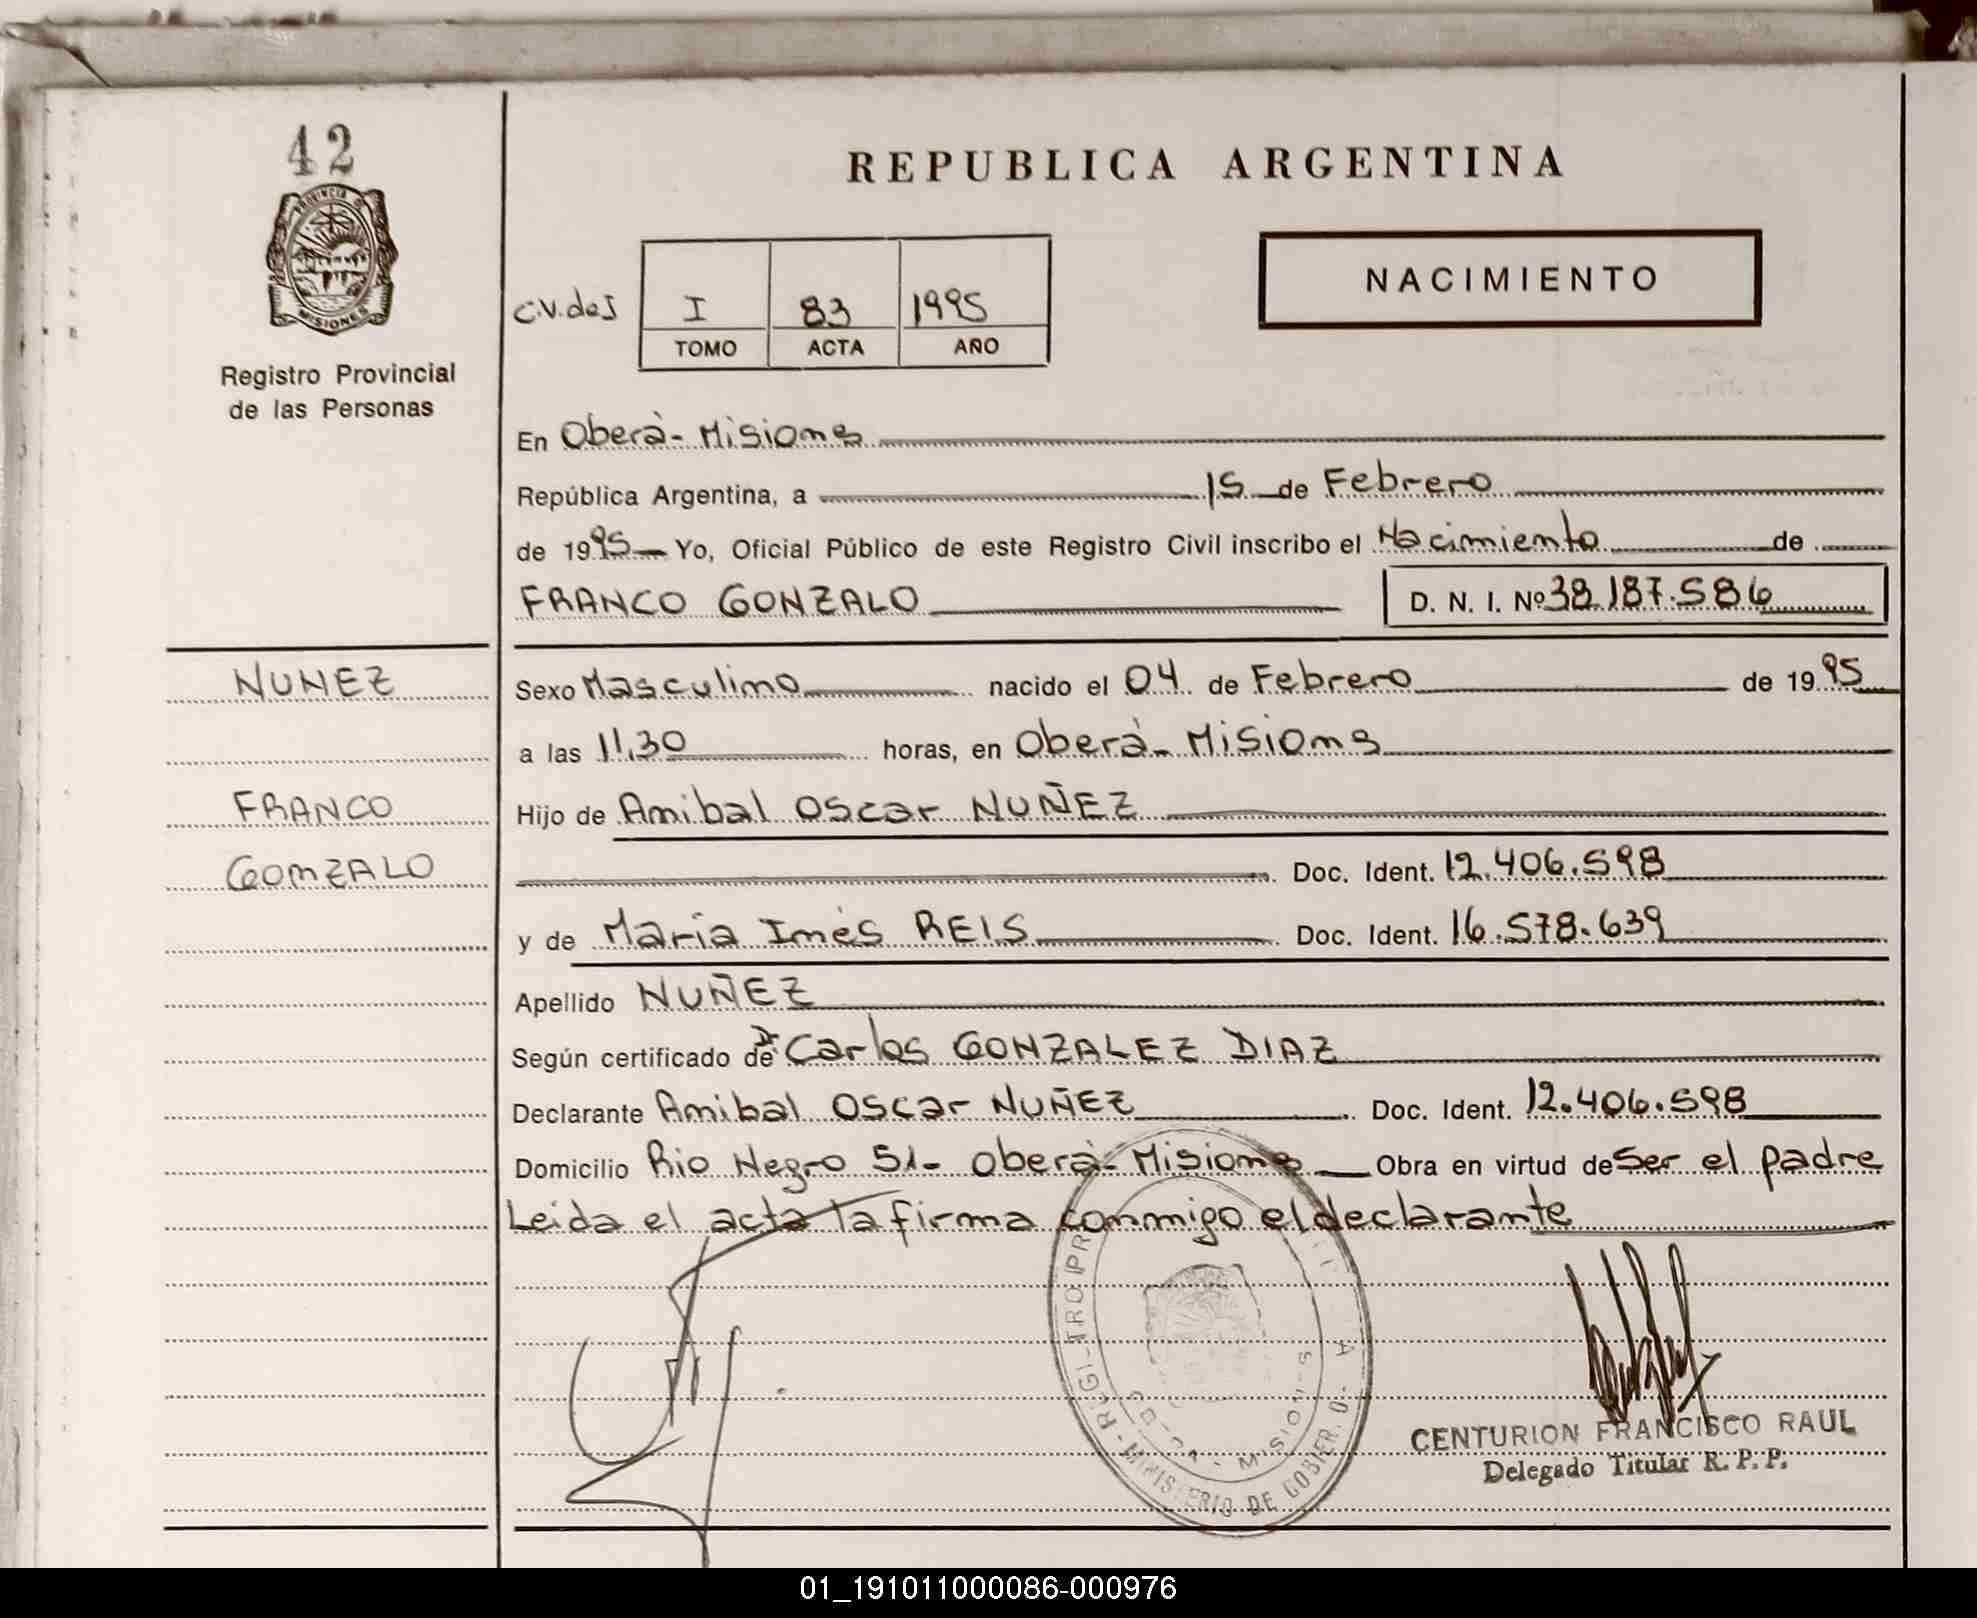 42
PROVINCIA DE
MISIONES
Registro Provincial
de las Personas
REPUBLICA ARGENTINA
NACIMIENTO
C.V.des I 83 1995
TOMO ACTA AÑO
En Oberà - Misiones
República Argentina, a 15 de Febrero
de 1995 Yo, Oficial Público de este Registro Civil inscribo el Nacimiento de
FRANCO GONZALO D. N. I. Nº 38.187.586
NUNEZ
FRANCO
GONZALO
Sexo Masculino nacido el 04 de Febrero de 1995
a las 11,30 horas, en Oberà - Misiones
Hijo de Anibal Oscar NUÑEZ
Doc. Ident. 12.406.598
y de Maria Inés REIS Doc. Ident. 16.578.639
Apellido NUÑEZ
Según certificado de Carlos GONZALEZ DIAZ
Declarante Anibal Oscar NUÑEZ Doc. Ident. 12.406.598
Domicilio Rio Negro 51- Oberà - Misiones Obra en virtud de ser el padre
Leida el acta la firma conmigo el declarante
MINISTERIO DE GOBIER
CENTURION FRANCISCO RAUL
Delegado Titular R. P. P.
01_191011000086-000976